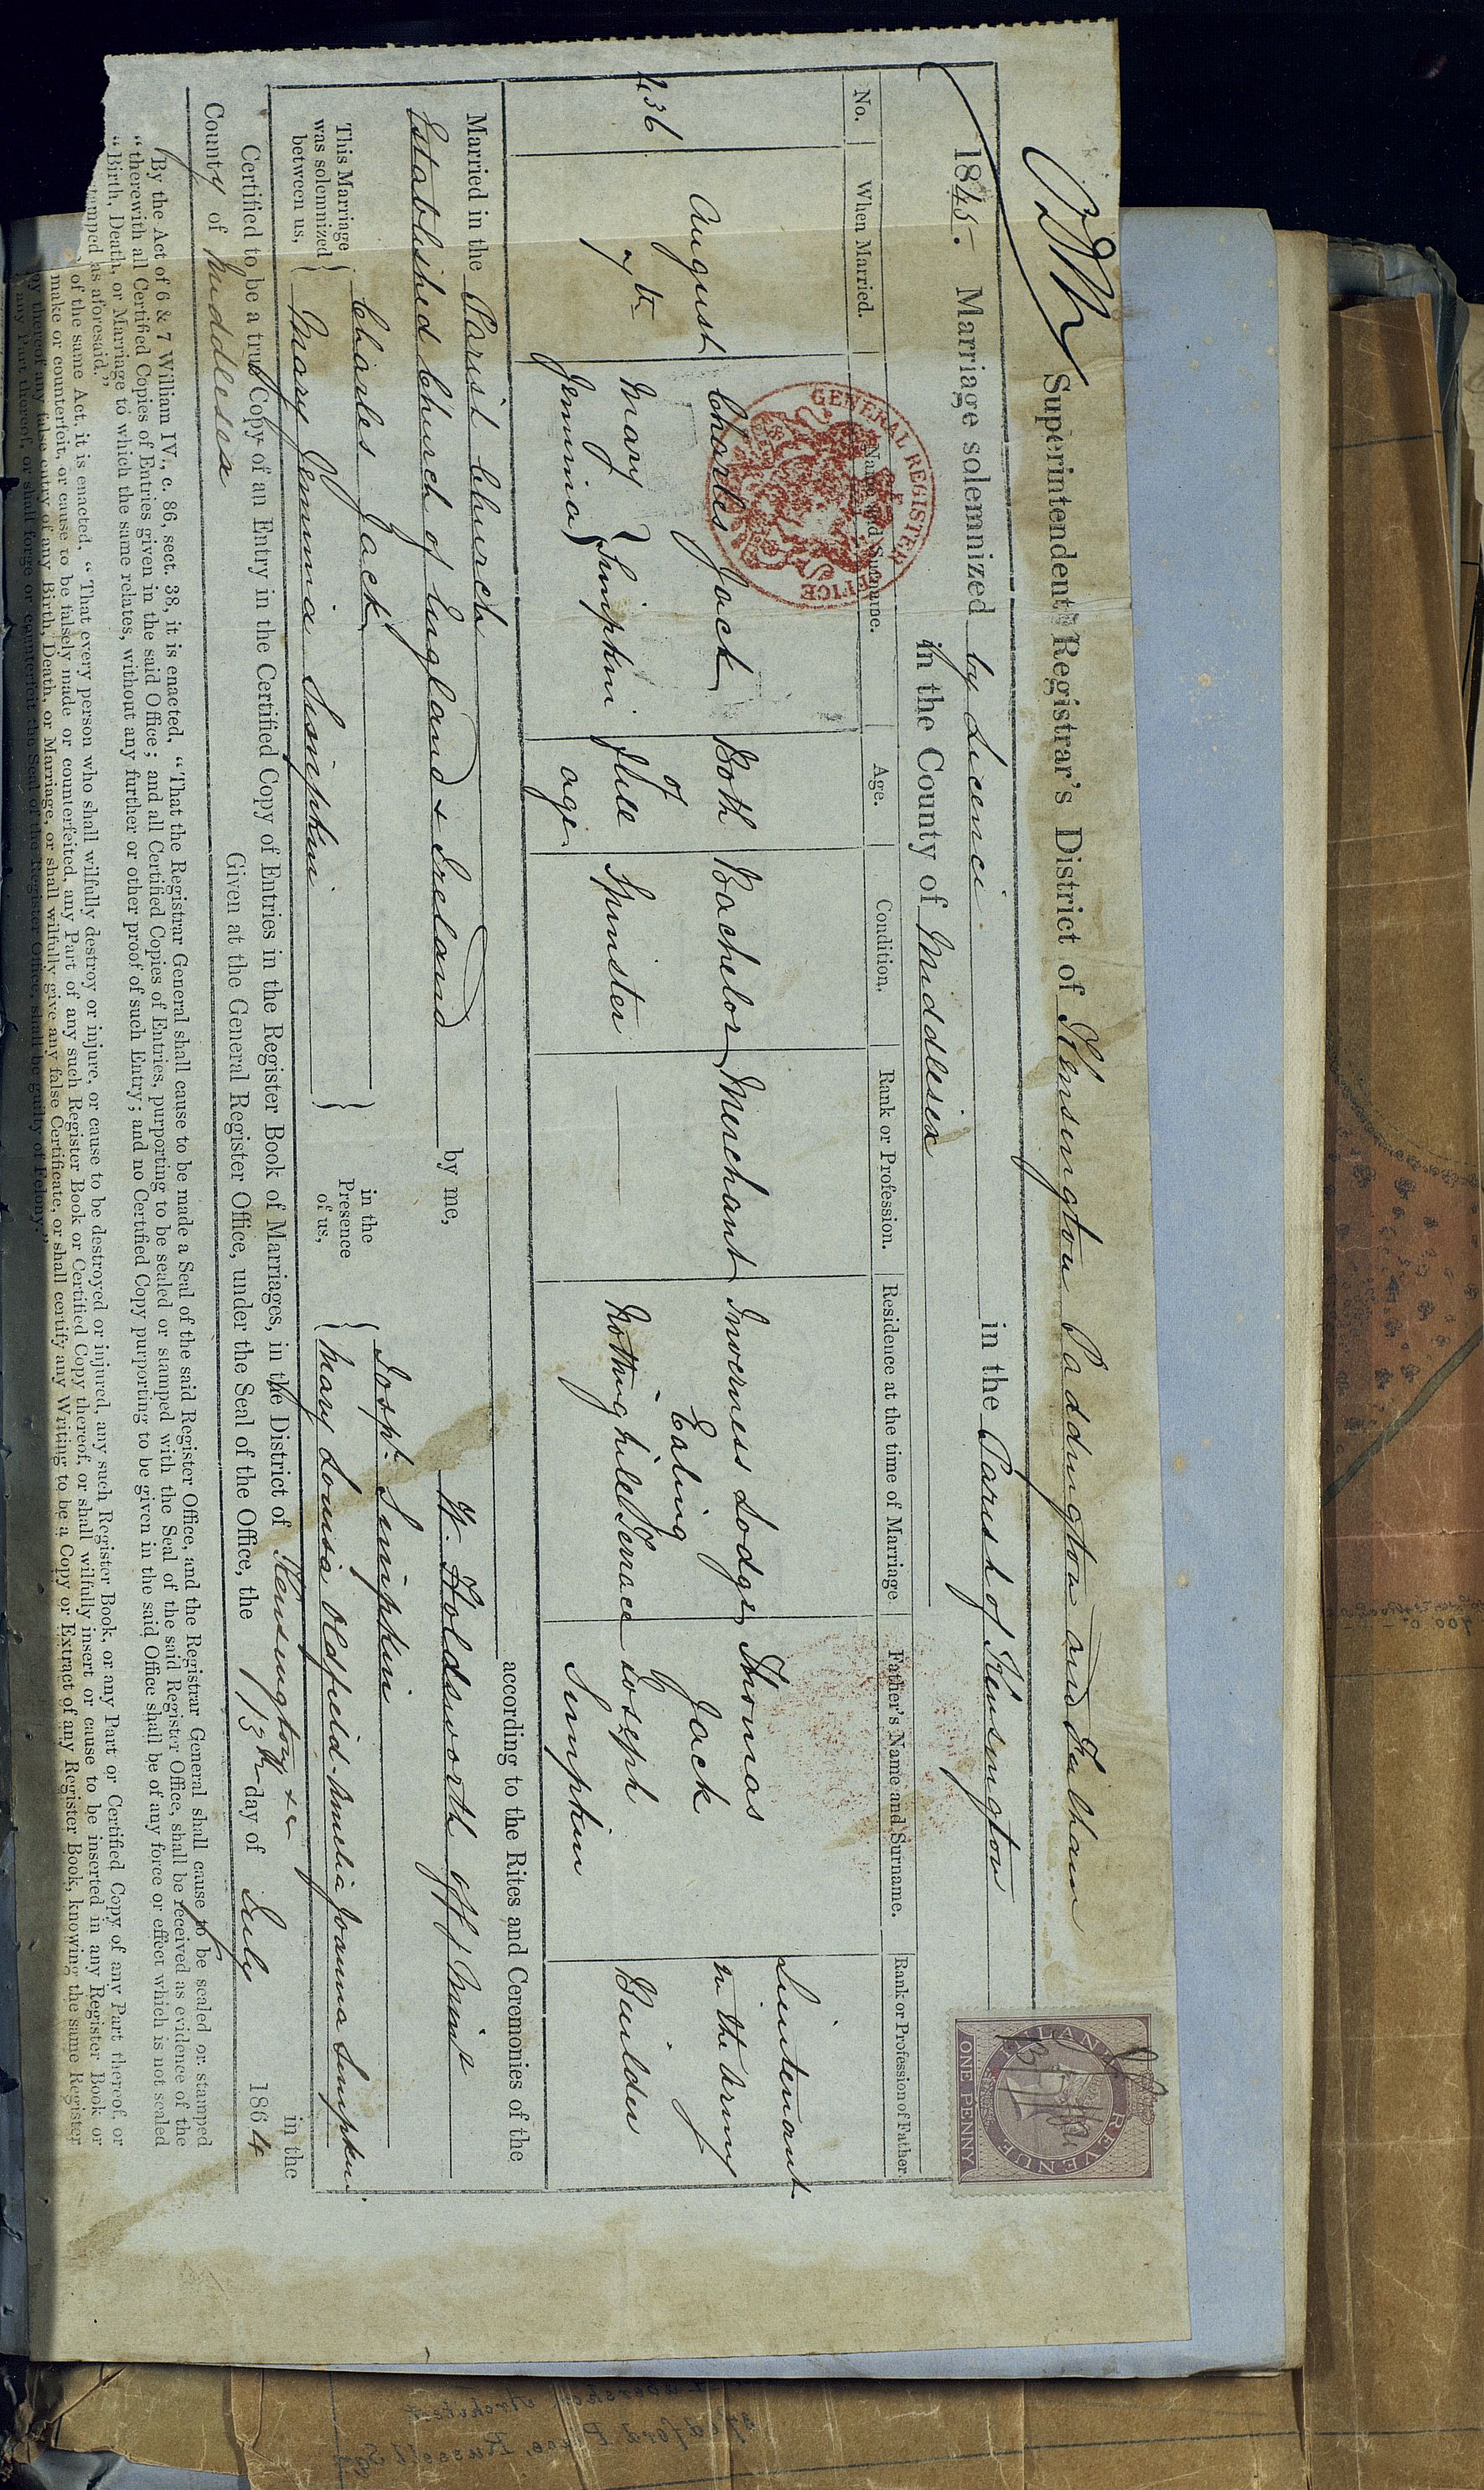 Superintendent Registrar's District of Kensington Paddington and Fulham
1845. Marriage solemnized by Licence in the Parish of Kensington
in the County of Middlesex
No. When Married. Name and Surname. Age. Condition. Rank or Profession. Residence at the time of Marriage. Father's Name and Surname. Rank or Profession of Father.
436 August 7th Charles Jack Both of full age Bachelor Merchant Inverness Lodge, Ealing Thomas Jack Lieutenant in the Army
Mary Jemima } Simpkin Spinster — Notting hill Terrace Joseph Simpkin Builder
GENERAL REGISTER OFFICE
Married in the Parish Church according to the Rites and Ceremonies of the
Established Church of England & Ireland by me, W. Holdsworth offg Minr
This Marriage was solemnized between us, { Charles Jack } in the Presence of us, { Josph. Simpkin
Mary Jemima Simpkin Mary Louisa Oldfield. Amelia Joanna Simpkin.
Certified to be a true Copy of an Entry in the Certified Copy of Entries in the Register Book of Marriages, in the District of Kensington &c in the
County of Middlesex Given at the General Register Office, under the Seal of the Office, the 13th day of July 1864
By the Act of 6 & 7 William IV., c. 86, sect. 38, it is enacted, "That the Registrar General shall cause to be made a Seal of the said Register Office, and the Registrar General shall cause to be sealed or stamped
"therewith all Certified Copies of Entries given in the said Office; and all Certified Copies of Entries, purporting to be sealed or stamped with the Seal of the said Register Office, shall be received as evidence of the
"Birth, Death, or Marriage to which the same relates, without any further or other proof of such Entry; and no Certified Copy purporting to be given in the said Office shall be of any force or effect which is not sealed
as aforesaid."
of the same Act, it is enacted, "That every person who shall wilfully destroy or injure, or cause to be destroyed or injured, any such Register Book, or any Part or Certified Copy of any Part thereof, or
make or counterfeit, or cause to be falsely made or counterfeited, any Part of any such Register Book or Certified Copy thereof, or shall wilfully insert or cause to be inserted in any Register Book or
thereof any false entry of any Birth, Death, or Marriage, or shall wilfully give any false Certificate, or shall certify any Writing to be a Copy or Extract of any Register Book, knowing the same Register
any Part thereof, or shall forge or counterfeit the Seal of the Register Office, shall be guilty of Felony."
INLAND REVENUE
ONE PENNY